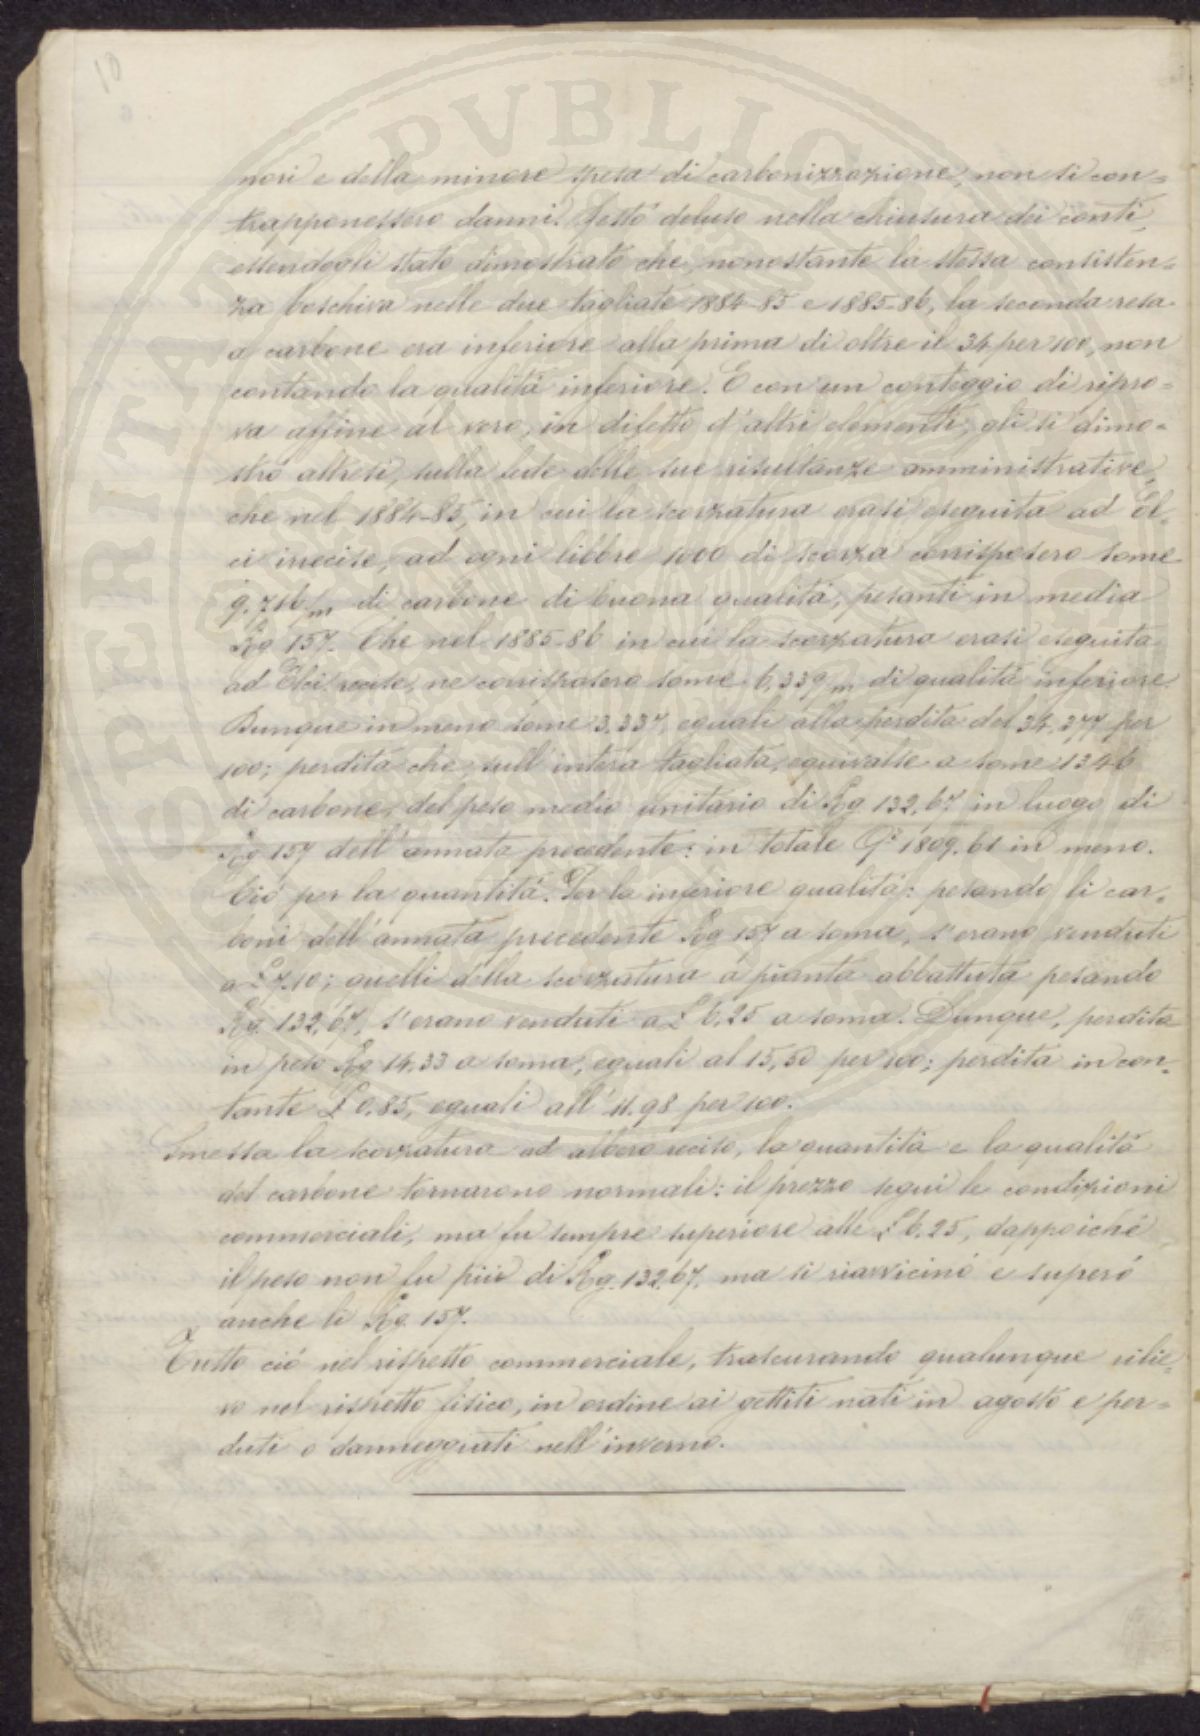 10
nori e della minore spesa di carbonizzazione, non si con=
trapponessero danni. Restò deluso nella chiusura dei conti,
essendogli stato dimostrato che, nonostante la stessa consisten=
za boschiva nelle due tagliate 1884-85 e 1885-86, la seconda resa
a carbone era inferiore alla prima di oltre il 34 per 100, non
contando la qualità inferiore. E con un conteggio di ripro=
va affine al vero, in difetto d'altri elementi, gli si dimo=
strò altresì, sulla fede delle sue risultanze amministrative,
che nel 1884-85, in cui la scorzatura erasi eseguita ad El=
ci irrecise, ad ogni libbre 1000 di scorza corrisposero some
9,716/m di carbone di buona qualità, pesanti in media
Kg 157. Che nel 1885-86 in cui la scorzatura erasi eseguita
ad Elci recise, ne corrisposero some 6,339/m di qualità inferiore.
Dunque in meno some 3,337, eguali alla perdita del 34,377 per
100; perdita che, sull'intera tagliata, equivalse a some 1346
di carbone, del peso medio unitario di Kg 132,67 in luogo di
Kg 157 dell'annata precedente: in totale Qi 1809.61 in meno.
Ciò per la quantità. Per la inferiore qualità: pesando li car=
boni dell'annata precedente Kg 157 a soma, s'erano venduti
a £ 7.10; quelli della scorzatura a pianta abbattuta pesando
Kg. 132,67, s'erano venduti a £ 6,25 a soma. Dunque, perdita
in peso Kg 14,33 a soma, eguali al 15,50 per 100; perdita in con=
tante £ 0.85, eguali all'11.98 per 100.
Smessa la scorzatura ad albero reciso, la quantità e la qualità
del carbone tornarono normali: il prezzo seguì le condizioni
commerciali, ma fu sempre superiore alle £ 6.25, dappoichè
il peso non fu più di Kg. 132.67, ma si riavvicinò e superò
anche li Kg. 157.
Tutto ciò nel rispetto commerciale, trascurando qualunque rilie=
vo nel rispetto fisico, in ordine ai gettiti nati in agosto e per=
duti o danneggiati nell'inverno.